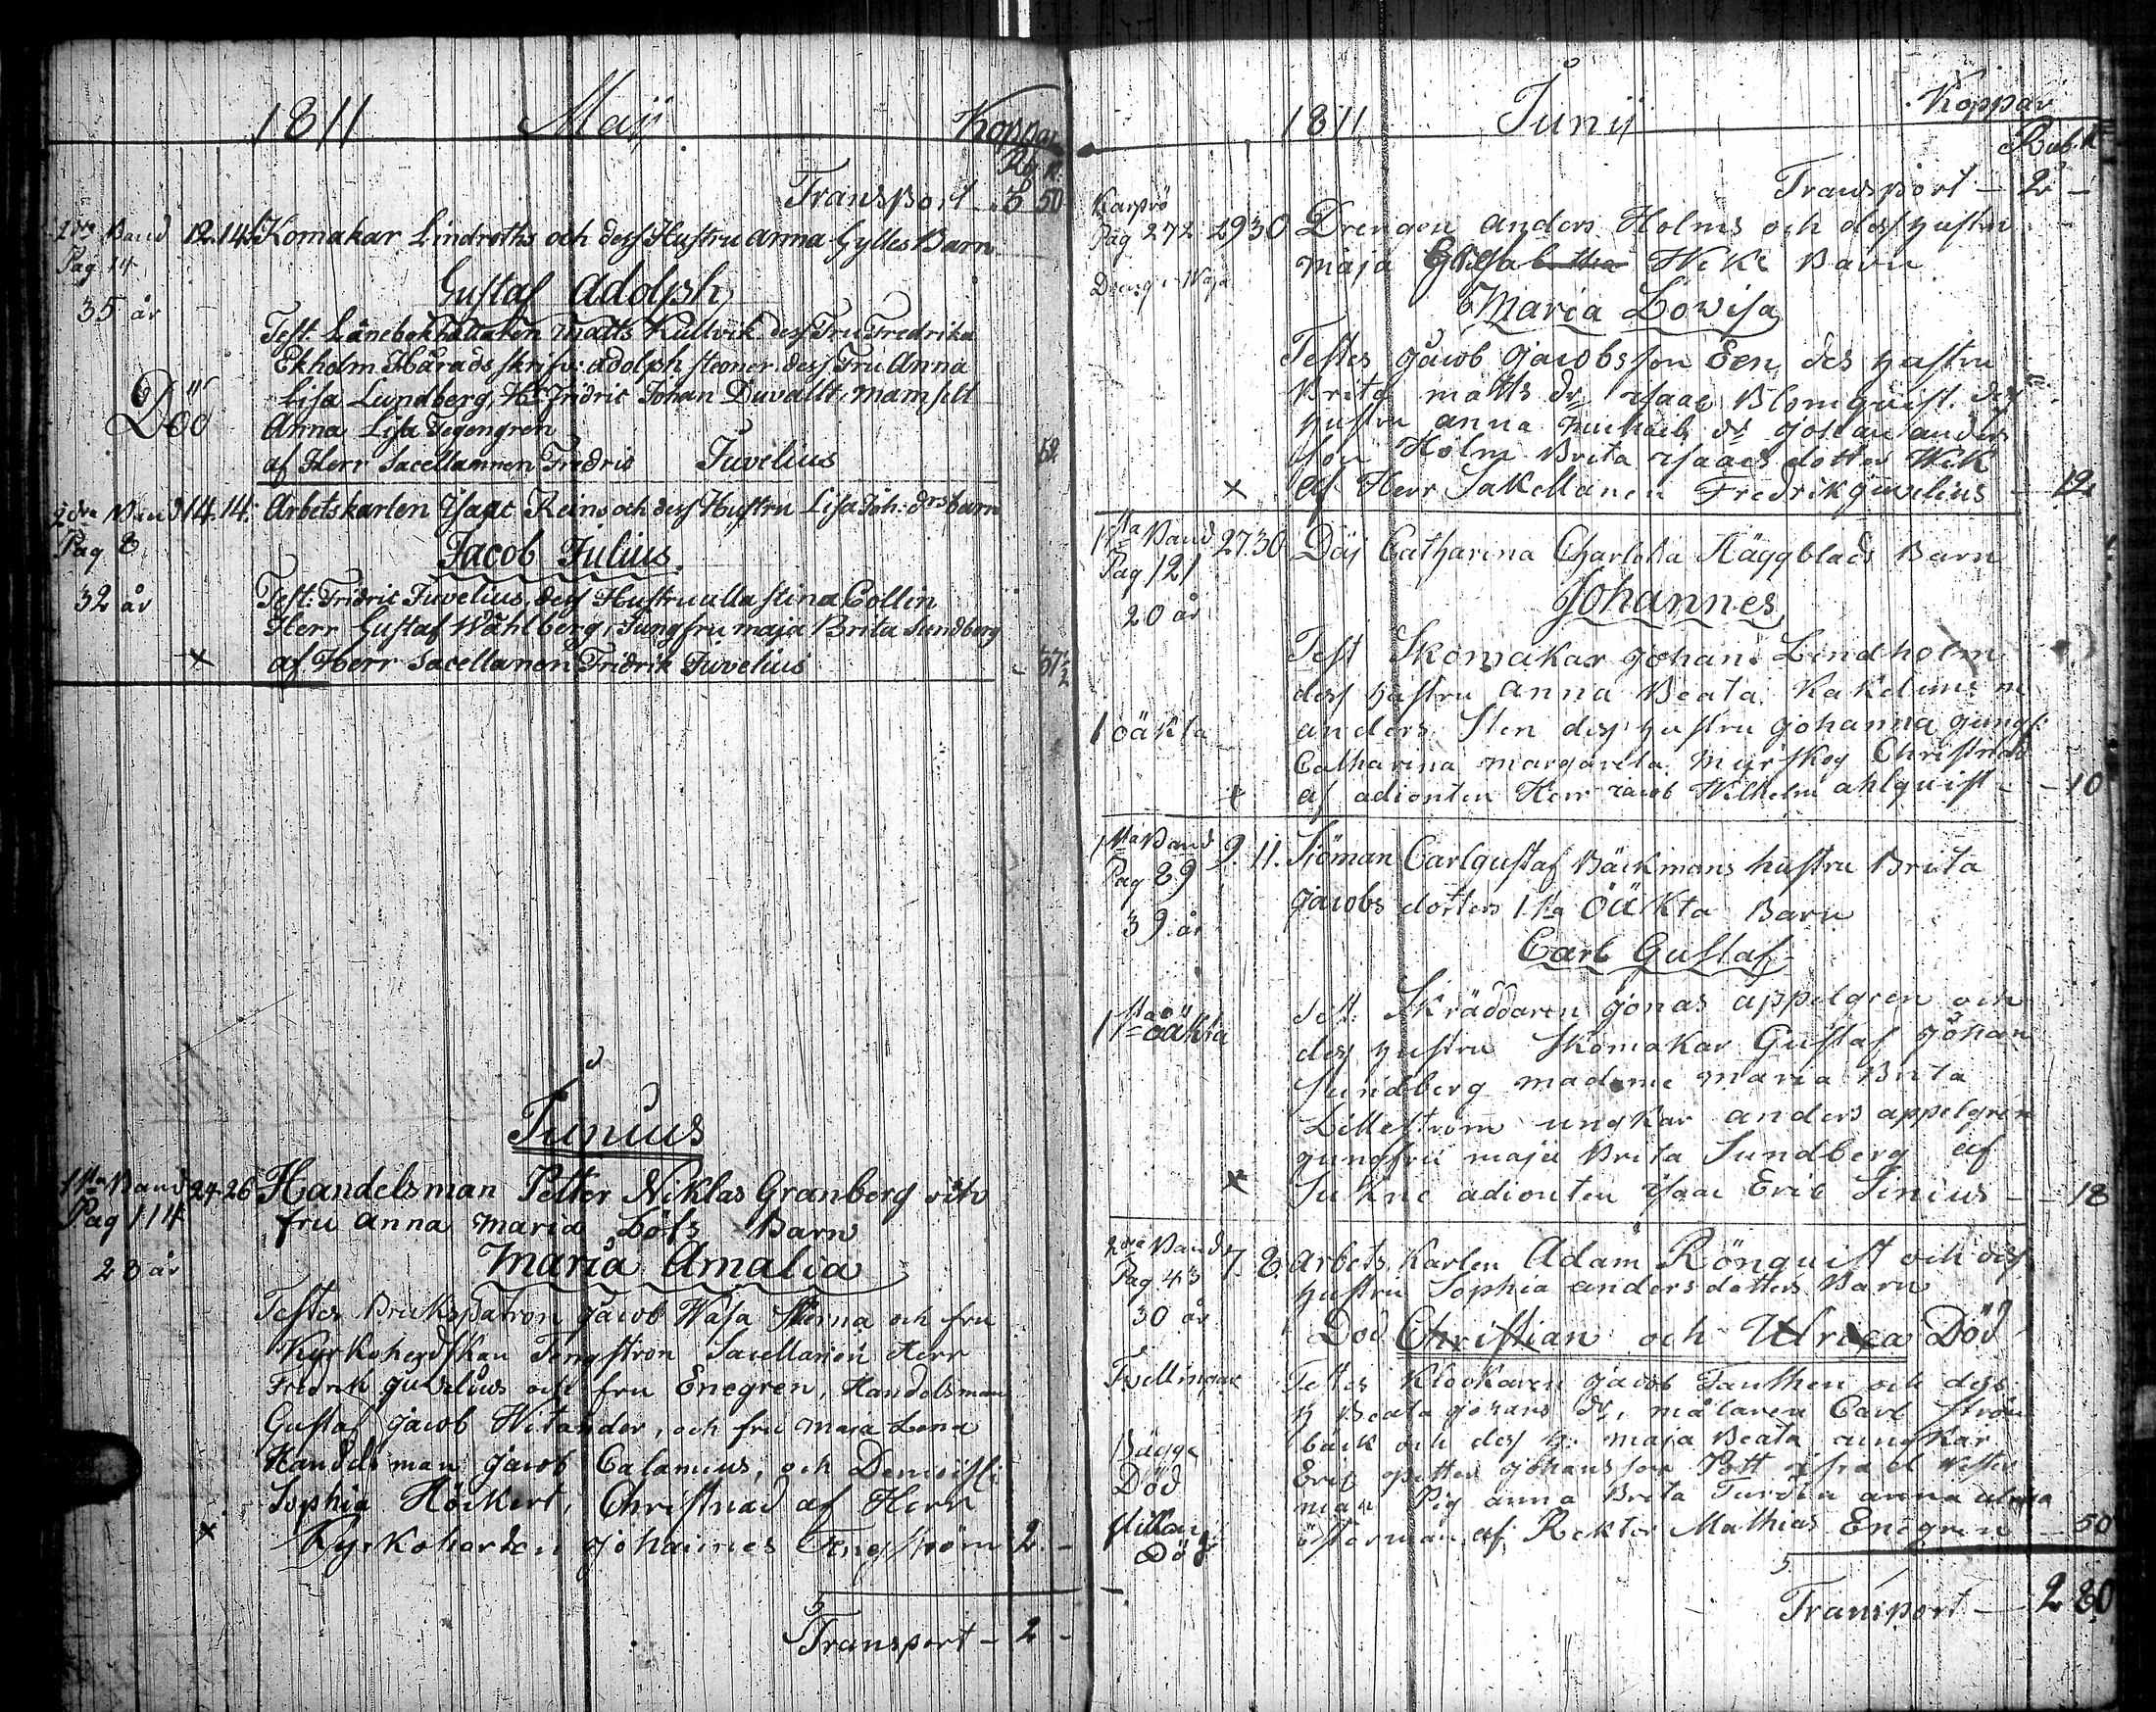 1811 Maij Koppar
Rb. k.
Transport - 3 50
1sta Band 12. 14. Skomakar Lindroths och dess Hustru Anna Gylles Barn
Pag 14
Gustaf Adolph
35 år
Test. Länebokhållaren Matts Kullvik dess Fru Fredrika
Ekholm Härads skrifv: Adolph Stenor dess Fru Anna
Lisa Lundberg, Hr Fridric Johan Duvallt, Mamsell
Död Anna Lisa Tegengren
af Herr Sacellannen Fredric Juvelius
2dra Band 14. 14. Arbetskarlen Isaac Reins och dess Hustru Lisa Joh: drs barn
Pag 8
Jacob Julius.
32 år Test: Fridric Juvelius, dess Hustru ulla Stina Collin
Herr Gustaf Wahlberg, Jungfru Maja Brita Sundberg
x af Herr Sacellanen Fridrik Juvelius - 37 1/2
Junius
1sta Band 24 26 Handelsman Petter Niklas Granberg och
Pag 114 fru Anna Maria Löfs Barn
Maria Amalia
23 år
Testes Brukspatron Jacob Wasa och fru
Kyrkoherdskan Tengström Sacellanen Herr
Fredrik Juvelius och fru Enegren, Handelsman
Gustaf Jacob Witander, och fru Maja Lena
Handelsman Jacob Calamnius, och Demoisll:
Sophia Höckert, Christnad af Herr
x Kyrkoherden Johannes Tengström 2. -
5
Transport - 2 -
1811 Junij Koppar
Rub. k
Transport - 2 -
Karprö
Pag 272 29 30 Drengen Anders Holms och dess hustru
Maja Wiks Barn
Dreng i Wasa
Maria Lovisa
Testes Jacob Jacobsson Een, des hustru
Brita Matts dr Isaac Blomquist. dess
hustru Anna Michaels dr Johan Anders
son Holm Brita Isaacs dotter Wik
x af Herr Sakellanen Fredrik Juvelius - 12.
1sta Band 27. 30 Döj Catharina Charlotta Häggblads Barn
Pag 121
Johannes
20 år
Test Skomakar Johan Lindholm
dess hustru Anna Beata Kakelugns m
1 oäkta Anders Sten dess hustru Johanna Jungf:
Catharina Margareta Myrskog Christnad
x af adjonten Herr Jacob Wilhelm Ahlquist - - 10
1sta Band 9. 11. Sjöman Carl Gustaf Bäckmans hustru Brita
Pag 89 Jacobs dotters 1sta oäkta Barn
39 år
Carl Gustaf
Test. Skräddaren Jonas Appelgren och
1sta oäkta dess hustru Skomakar Gustaf Johan
Sundberg Madame Maria Brita
Lilleström ungkar Anders Appelgren
Jungfru Maja Brita Sundberg af
x Sockne adjonten Isaac Eric Simius - - 18
2dra Band 7. 8. Arbets Karlen Adam Rönquist och dess
Pag 43 hustru Sophia Anders dotters Barn
30 år
Död Christian och Ulrica Död
Tvillingar Testes Klockaren Jacob Fanthen och dess
h Beata Johans dr, målaren Carl Ström
Bägge bäck och dess h. Maja Beata, ungkar
Död Eric Petter Johansson Pott
man Pig Anna Brita Anna
österman, af Rektor Mathias Enegren - 50
5
Transport - 2 80